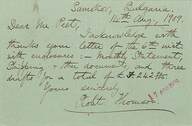 Samokov, Bulgaria.
14th Aug., 1909.
Dear Mr Peet,
I acknowledge with
thanks your letter of the 6th inst.
with enclosures: - Monthly Statement,
& other documents, and three
drafts for a total of
Yours sincerely
Robt. Thomson.